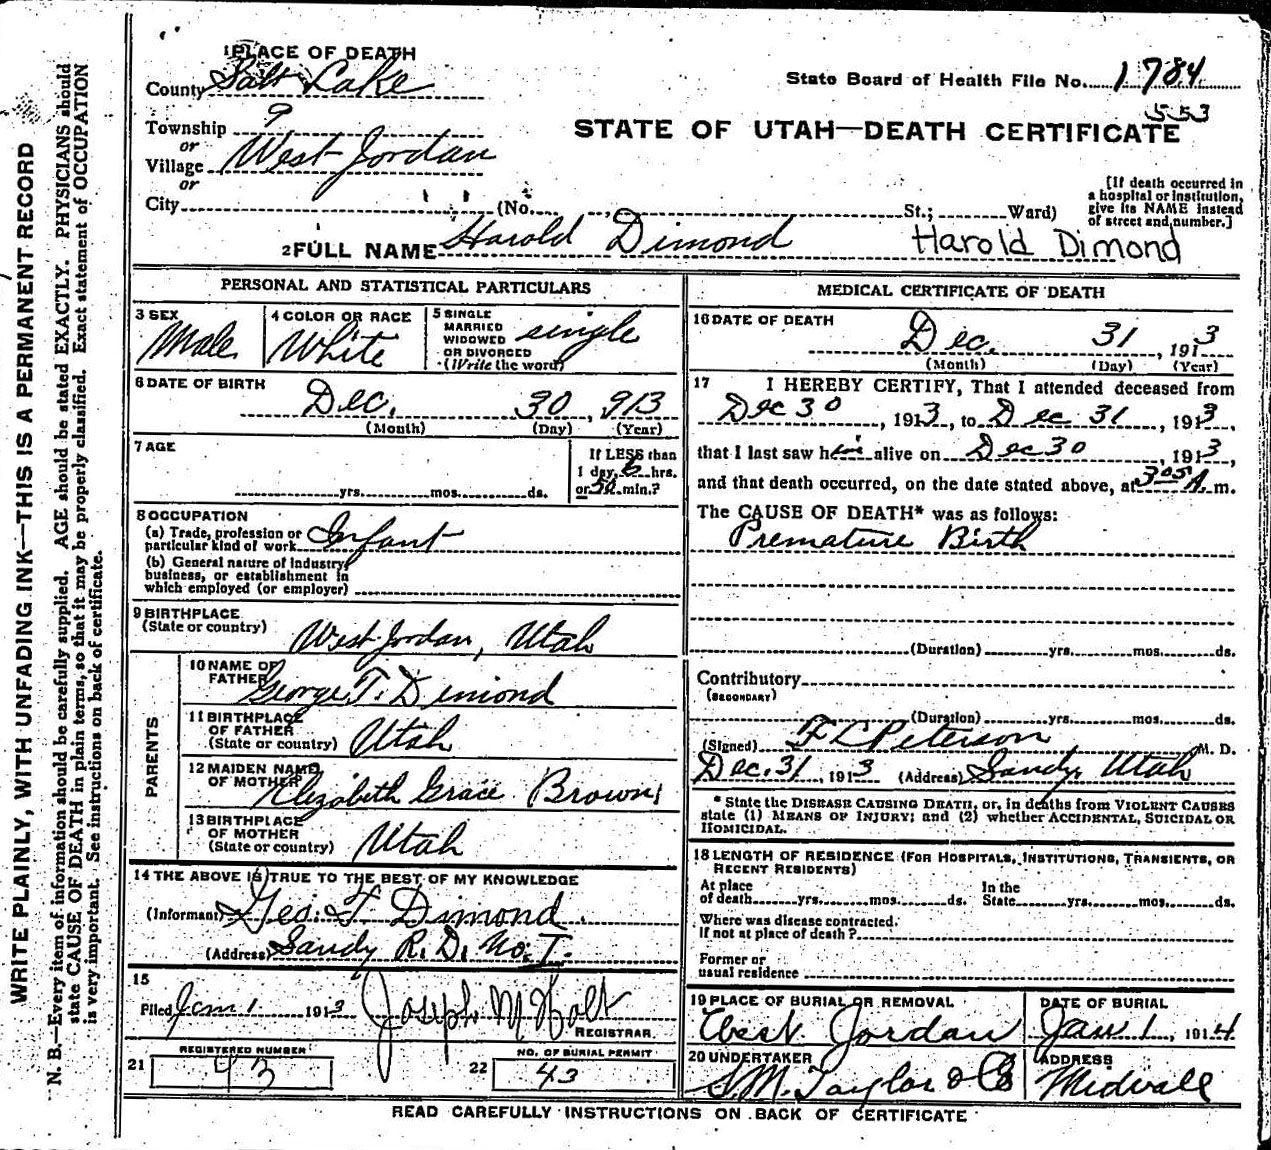 WRITE PLAINLY, WITH UNFADING INK—THIS IS A PERMANENT RECORD
N. B.—Every item of information should be carefully supplied. AGE should be stated EXACTLY. PHYSICIANS should
state CAUSE OF DEATH in plain terms, so that it may be properly classified. Exact statement of OCCUPATION
is very important. See instructions on back of certificate.
1 PLACE OF DEATH
County Salt Lake
State Board of Health File No. 1784
553
Township 9
or
Village West Jordan
or
City (No. , St.; Ward)
STATE OF UTAH—DEATH CERTIFICATE
[If death occurred in
a hospital or institution,
give its NAME instead
of street and number.]
2 FULL NAME Harold Dimond Harold Dimond
PERSONAL AND STATISTICAL PARTICULARS
3 SEX
Male
4 COLOR OR RACE
White
5 SINGLE
MARRIED
WIDOWED
OR DIVORCED
(Write the word)
single
6 DATE OF BIRTH
Dec. 30, 913
(Month) (Day) (Year)
7 AGE
yrs. mos. ds.
If LESS than
1 day, 6 hrs.
or 50 min.?
8 OCCUPATION
(a) Trade, profession or
particular kind of work Infant
(b) General nature of industry,
business, or establishment in
which employed (or employer)
9 BIRTHPLACE
(State or country) West Jordan, Utah
PARENTS
10 NAME OF
FATHER George T. Dimond
11 BIRTHPLACE
OF FATHER
(State or country) Utah
12 MAIDEN NAME
OF MOTHER Elizabeth Grace Brown
13 BIRTHPLACE
OF MOTHER
(State or country) Utah
14 THE ABOVE IS TRUE TO THE BEST OF MY KNOWLEDGE
(Informant) Geo. T. Dimond
(Address) Sandy R. D. No. 1.
15
Filed Jan 1 1913 Joseph M Holt
REGISTRAR
21 REGISTERED NUMBER
43
22 NO. OF BURIAL PERMIT
43
MEDICAL CERTIFICATE OF DEATH
16 DATE OF DEATH
Dec. 31, 1913
(Month) (Day) (Year)
17 I HEREBY CERTIFY, That I attended deceased from
Dec 30, 1913, to Dec 31, 1913,
that I last saw him alive on Dec 30, 1913,
and that death occurred, on the date stated above, at 3:05 A. m.
The CAUSE OF DEATH* was as follows:
Premature Birth
(Duration) yrs. mos. ds.
Contributory
(SECONDARY)
(Duration) yrs. mos. ds.
(Signed) F L Peterson M. D.
Dec. 31, 1913 (Address) Sandy, Utah
* State the DISEASE CAUSING DEATH, or, in deaths from VIOLENT CAUSES
state (1) MEANS OF INJURY; and (2) whether ACCIDENTAL, SUICIDAL OR
HOMICIDAL.
18 LENGTH OF RESIDENCE (FOR HOSPITALS, INSTITUTIONS, TRANSIENTS, OR
RECENT RESIDENTS)
At place
of death yrs. mos. ds.
In the
State yrs. mos. ds.
Where was disease contracted,
If not at place of death?
Former or
usual residence
19 PLACE OF BURIAL OR REMOVAL
West Jordan
DATE OF BURIAL
Jan 1, 1914
20 UNDERTAKER
S. M. Taylor & Co
ADDRESS
Midvale
READ CAREFULLY INSTRUCTIONS ON BACK OF CERTIFICATE